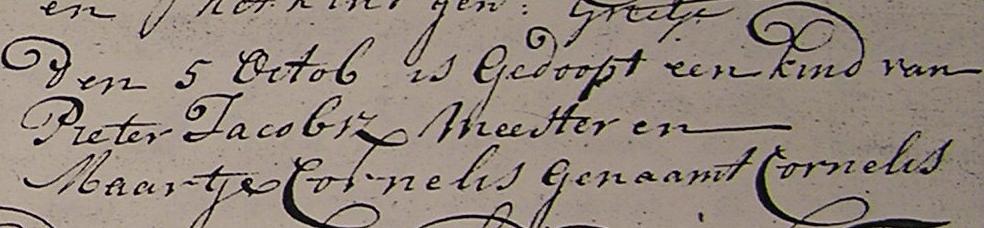 en het kind gen: Grietje
Den 5 Octob is Gedoopt een kind van
Pieter Jacobsz Meester en
Maartje Cornelis Genaamt Cornelis